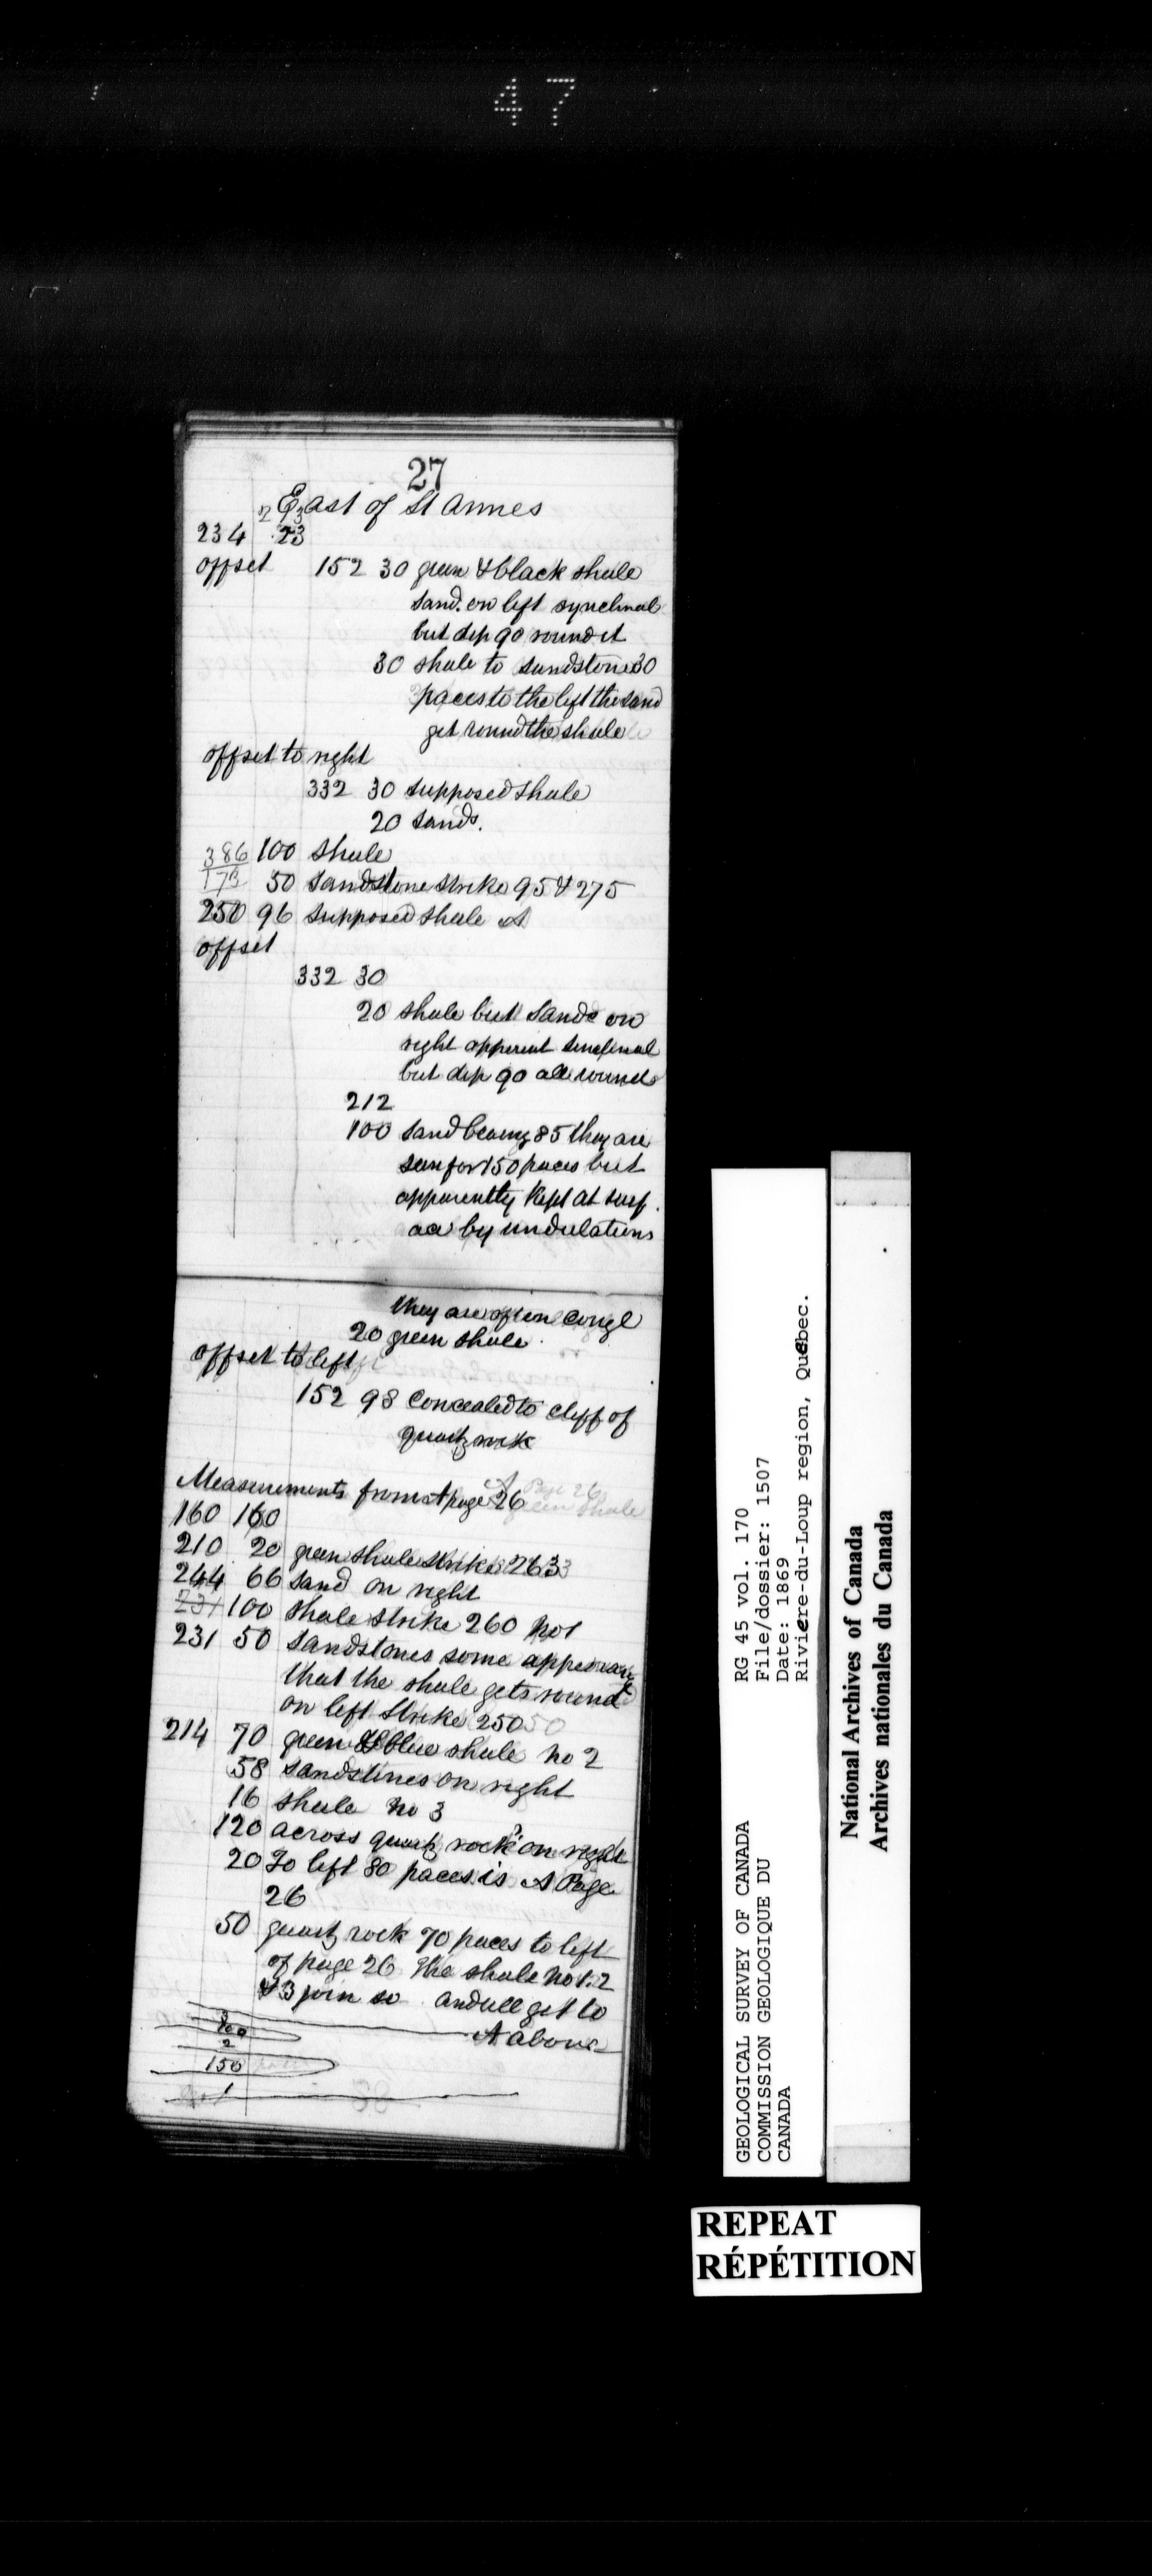 47
27
East of St Annes
234 23
offset 152 30 green & black shale
sand. on left synclinal
but dip go round it
30 shale to sandstone 30
paces to the left the sand
get round the shale
offset to right
332 30 supposed shale
20 sands.
386 100 shale
173 50 sandstone strike 95 & 275
250 96 supposed shale A
offset
332 30
20 shale but sands on
right apperent sinclinal
but dip go all round
212
100 sand bearing 85 they are
seen for 150 paces but
apparently kept at surf.
ace by undulations
they are often congl
20 green shale
offset to left
152 98 Concealed to cliff of
quartz rock
Measurements from A page 26
160 160
210 20 green shale strike 263
244 66 sand on right
231 100 shale strike 260 No 1
231 50 sandstones some appearance
that the shale gets round
on left strike 250
214 70 green & blue shale no 2
58 sandstones on right
16 shale no 3
120 across quartz rock on right
20 To left 80 paces is A Page
26
50 quartz rock 70 paces to left
of page 26 The shale no 1. 2
& 3 join so and all get to
A above
3
100
2
150
1
GEOLOGICAL SURVEY OF CANADA
COMMISSION GEOLOGIQUE DU
CANADA
RG 45 vol. 170
File/dossier: 1507
Date: 1869
Riviere-du-Loup region, Quebec.
National Archives of Canada
Archives nationales du Canada
REPEAT
RÉPÉTITION